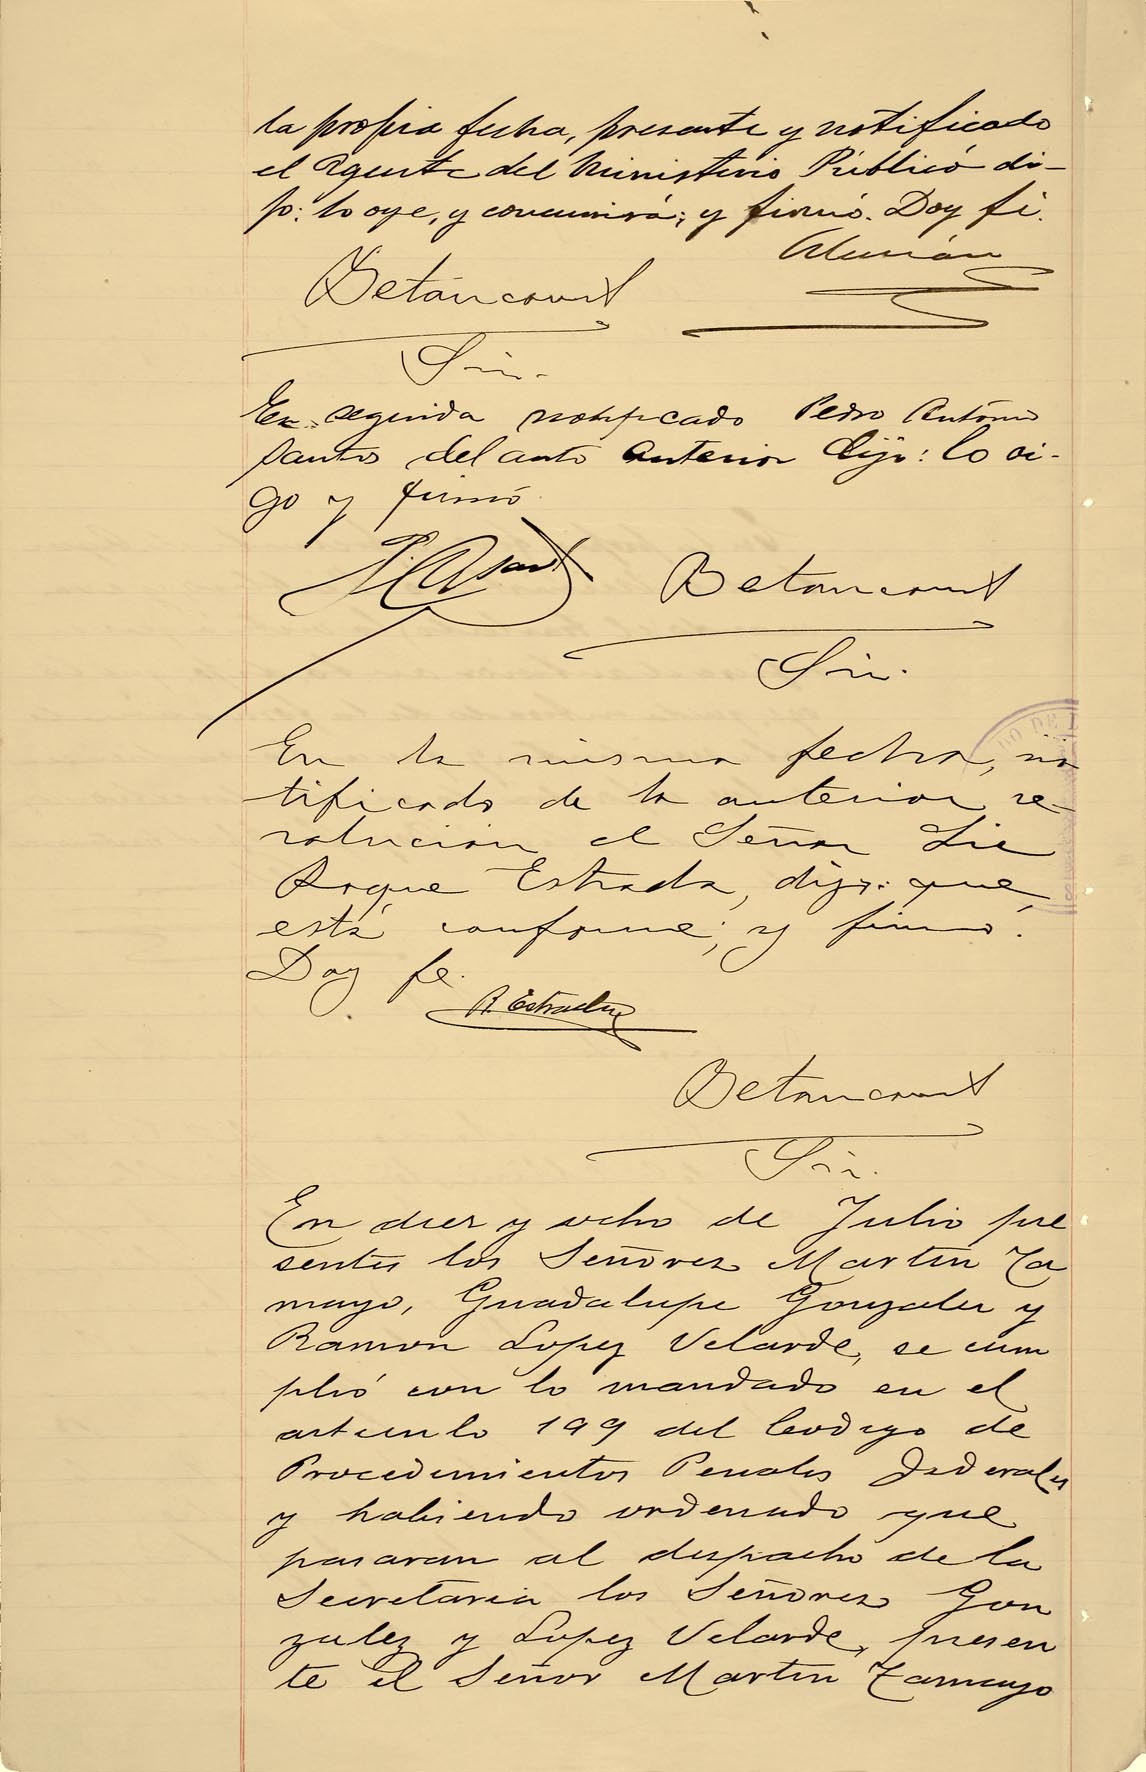 la propia fecha, presente y notificado
el Agente del Ministerio Público di-
jo: lo oye, y concurrirá; y firmó. Doy fé.
Alemán
Betancourt
Srio.
En seguida notificado Pedro Antonio
Santos del auto anterior dijo: lo oi-
go y firmó
P. A. Sant
Betancourt
Srio.
En la misma fecha, no
tificado de la anterior re-
solución el Señor Lic
Roque Estrada, dijo: que
está conforme; y firmó.
Doy fe.
R. Estrada
Betancourt
Srio.
DO DE
En diez y ocho de Julio pre
sentes los Señores Martin Ta
mayo, Guadalupe Gonzalez y
Ramon Lopez Velarde, se cum
plió con lo mandado en el
articulo 199 del Codigo de
Procedimientos Penales Federales
y habiendo ordenado que
pasaran al despacho de la
Secretaria los Señores Gon
zalez y Lopez Velarde, presen
te el Señor Martin Tamayo